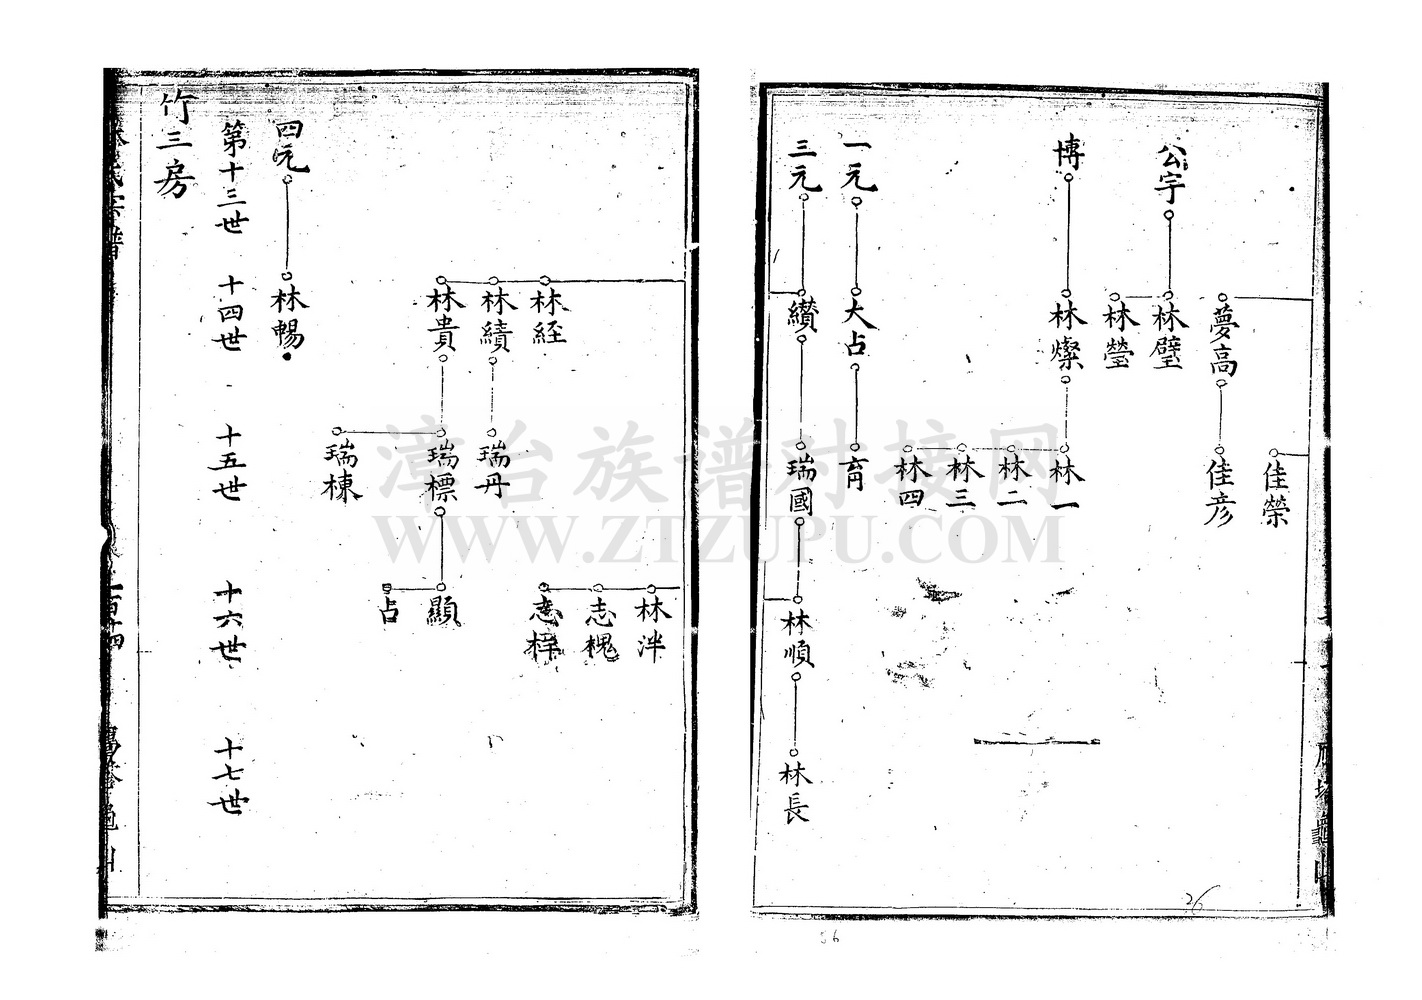 佳榮
夢高
佳彥
公宇
林璧
林瑩
博
林燦
林一
林二
林三
林四
一元
大占
育
三元
纘
瑞國
林順
林長
56
26
林經
林績
瑞丹
林貴
瑞標
瑞棟
顯
占
林泮
志槐
志梓
四元
林暢
第十三世
十四世
十五世
十六世
十七世
竹三房
漳台族谱对接网
WWW.ZTZUPU.COM